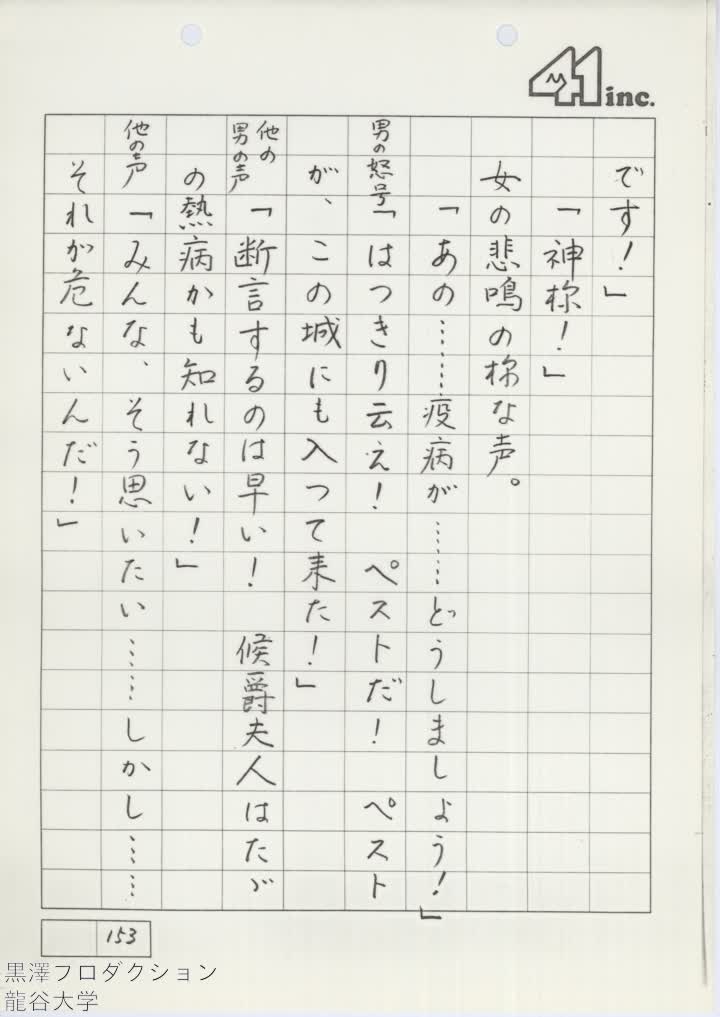 41 inc.
です！」
「神様！」
女の悲鳴の様な声。
「あの……疫病が……どうしましょう！」
男の怒号「はつきり云え！　ペストだ！　ペスト
が、この城にも入つて来た！」
他の男の声「断言するのは早い！　候爵夫人はたゞ
の熱病かも知れない！」
他の声「みんな、そう思いたい……しかし……
それが危ないんだ！」
153
黒澤フロダクション
龍谷大学